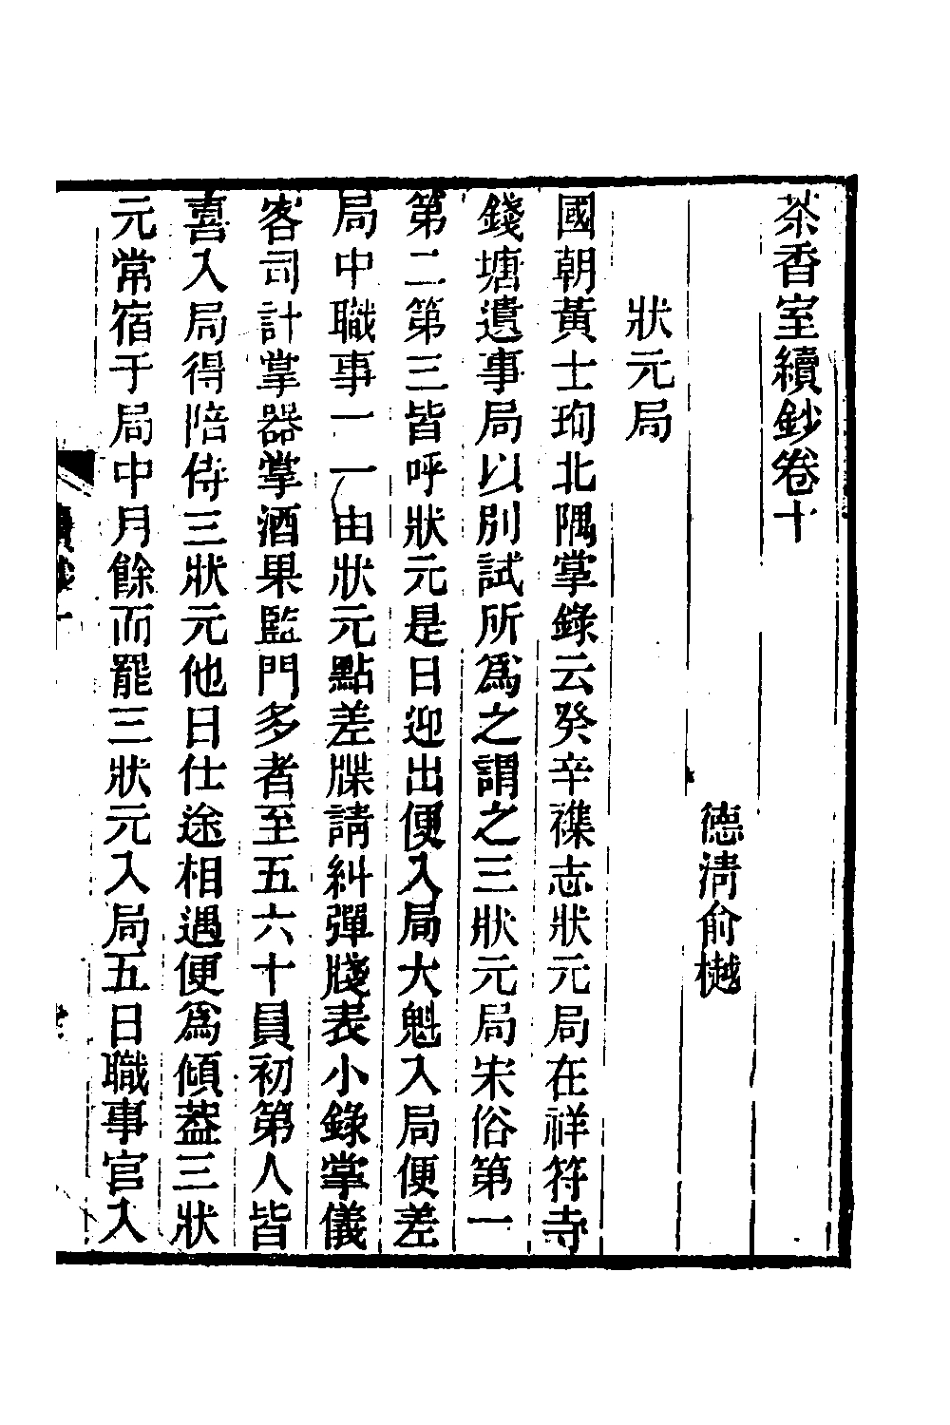 茶香室續鈔卷十
德清俞樾
狀元局
國朝黃士珣北隅掌錄云癸辛襍志狀元局在祥符寺
錢塘遺事局以別試所爲之謂之三狀元局宋俗第一
第二第三皆呼狀元是日迎出便入局大魁入局便差
局中職事一一由狀元點差牒請糾彈牋表小錄掌儀
客司計掌器掌酒果監門多者至五六十員初第人皆
喜入局得陪侍三狀元他日仕途相遇便爲傾蓋三狀
元常宿于局中月餘而罷三狀元入局五日職事官入